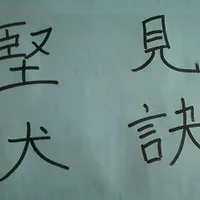 堅 見
犬 訣